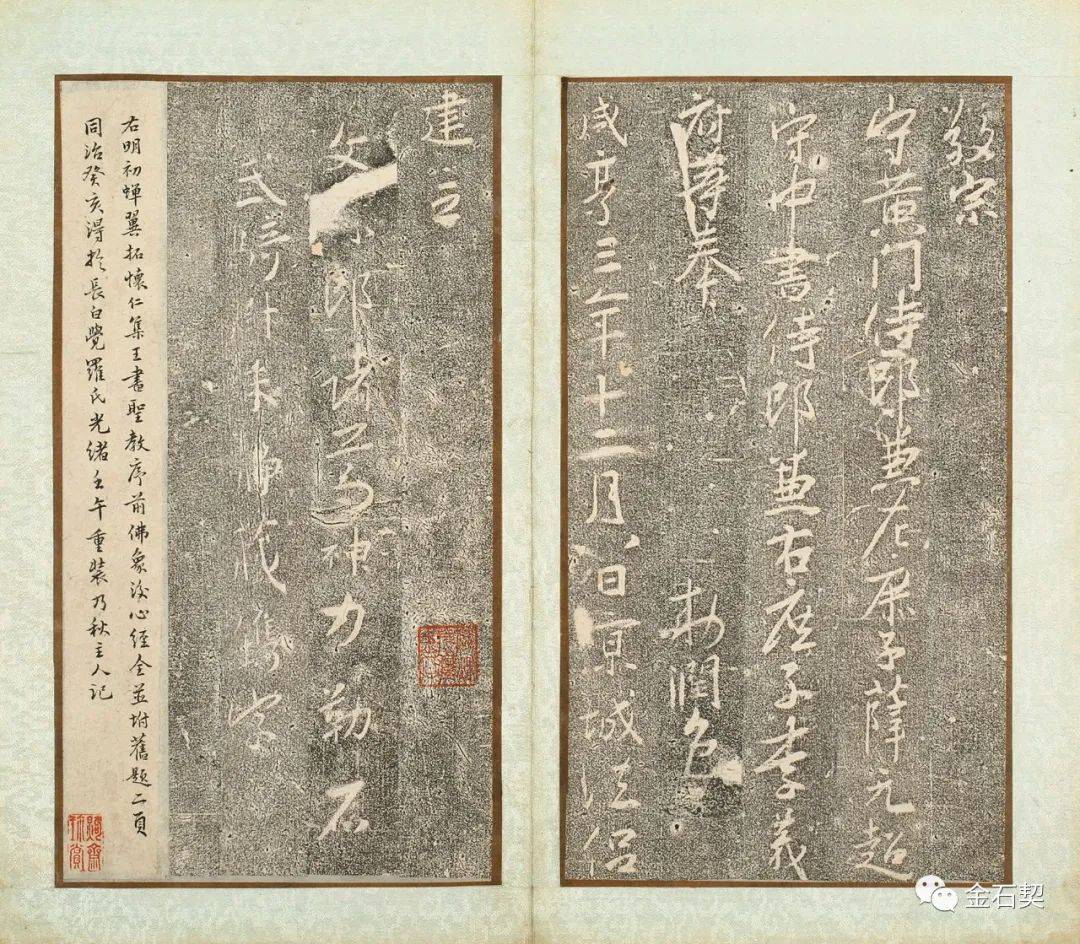 敬宗
守黄门侍郎兼左庶子薛元超
守中書侍郎兼右庶子李義
府等奉 勅潤色
咸亨三年十二月八日京城法侣
建立
文林郎諸葛神力勒石
武騎尉朱静藏鐫字
右明初蟬翼拓懷仁集王書聖教序前佛象後心經全並坿舊題二頁
同治癸亥得於長白覺羅氏光緒壬午重裝乃秋主人記
金石契